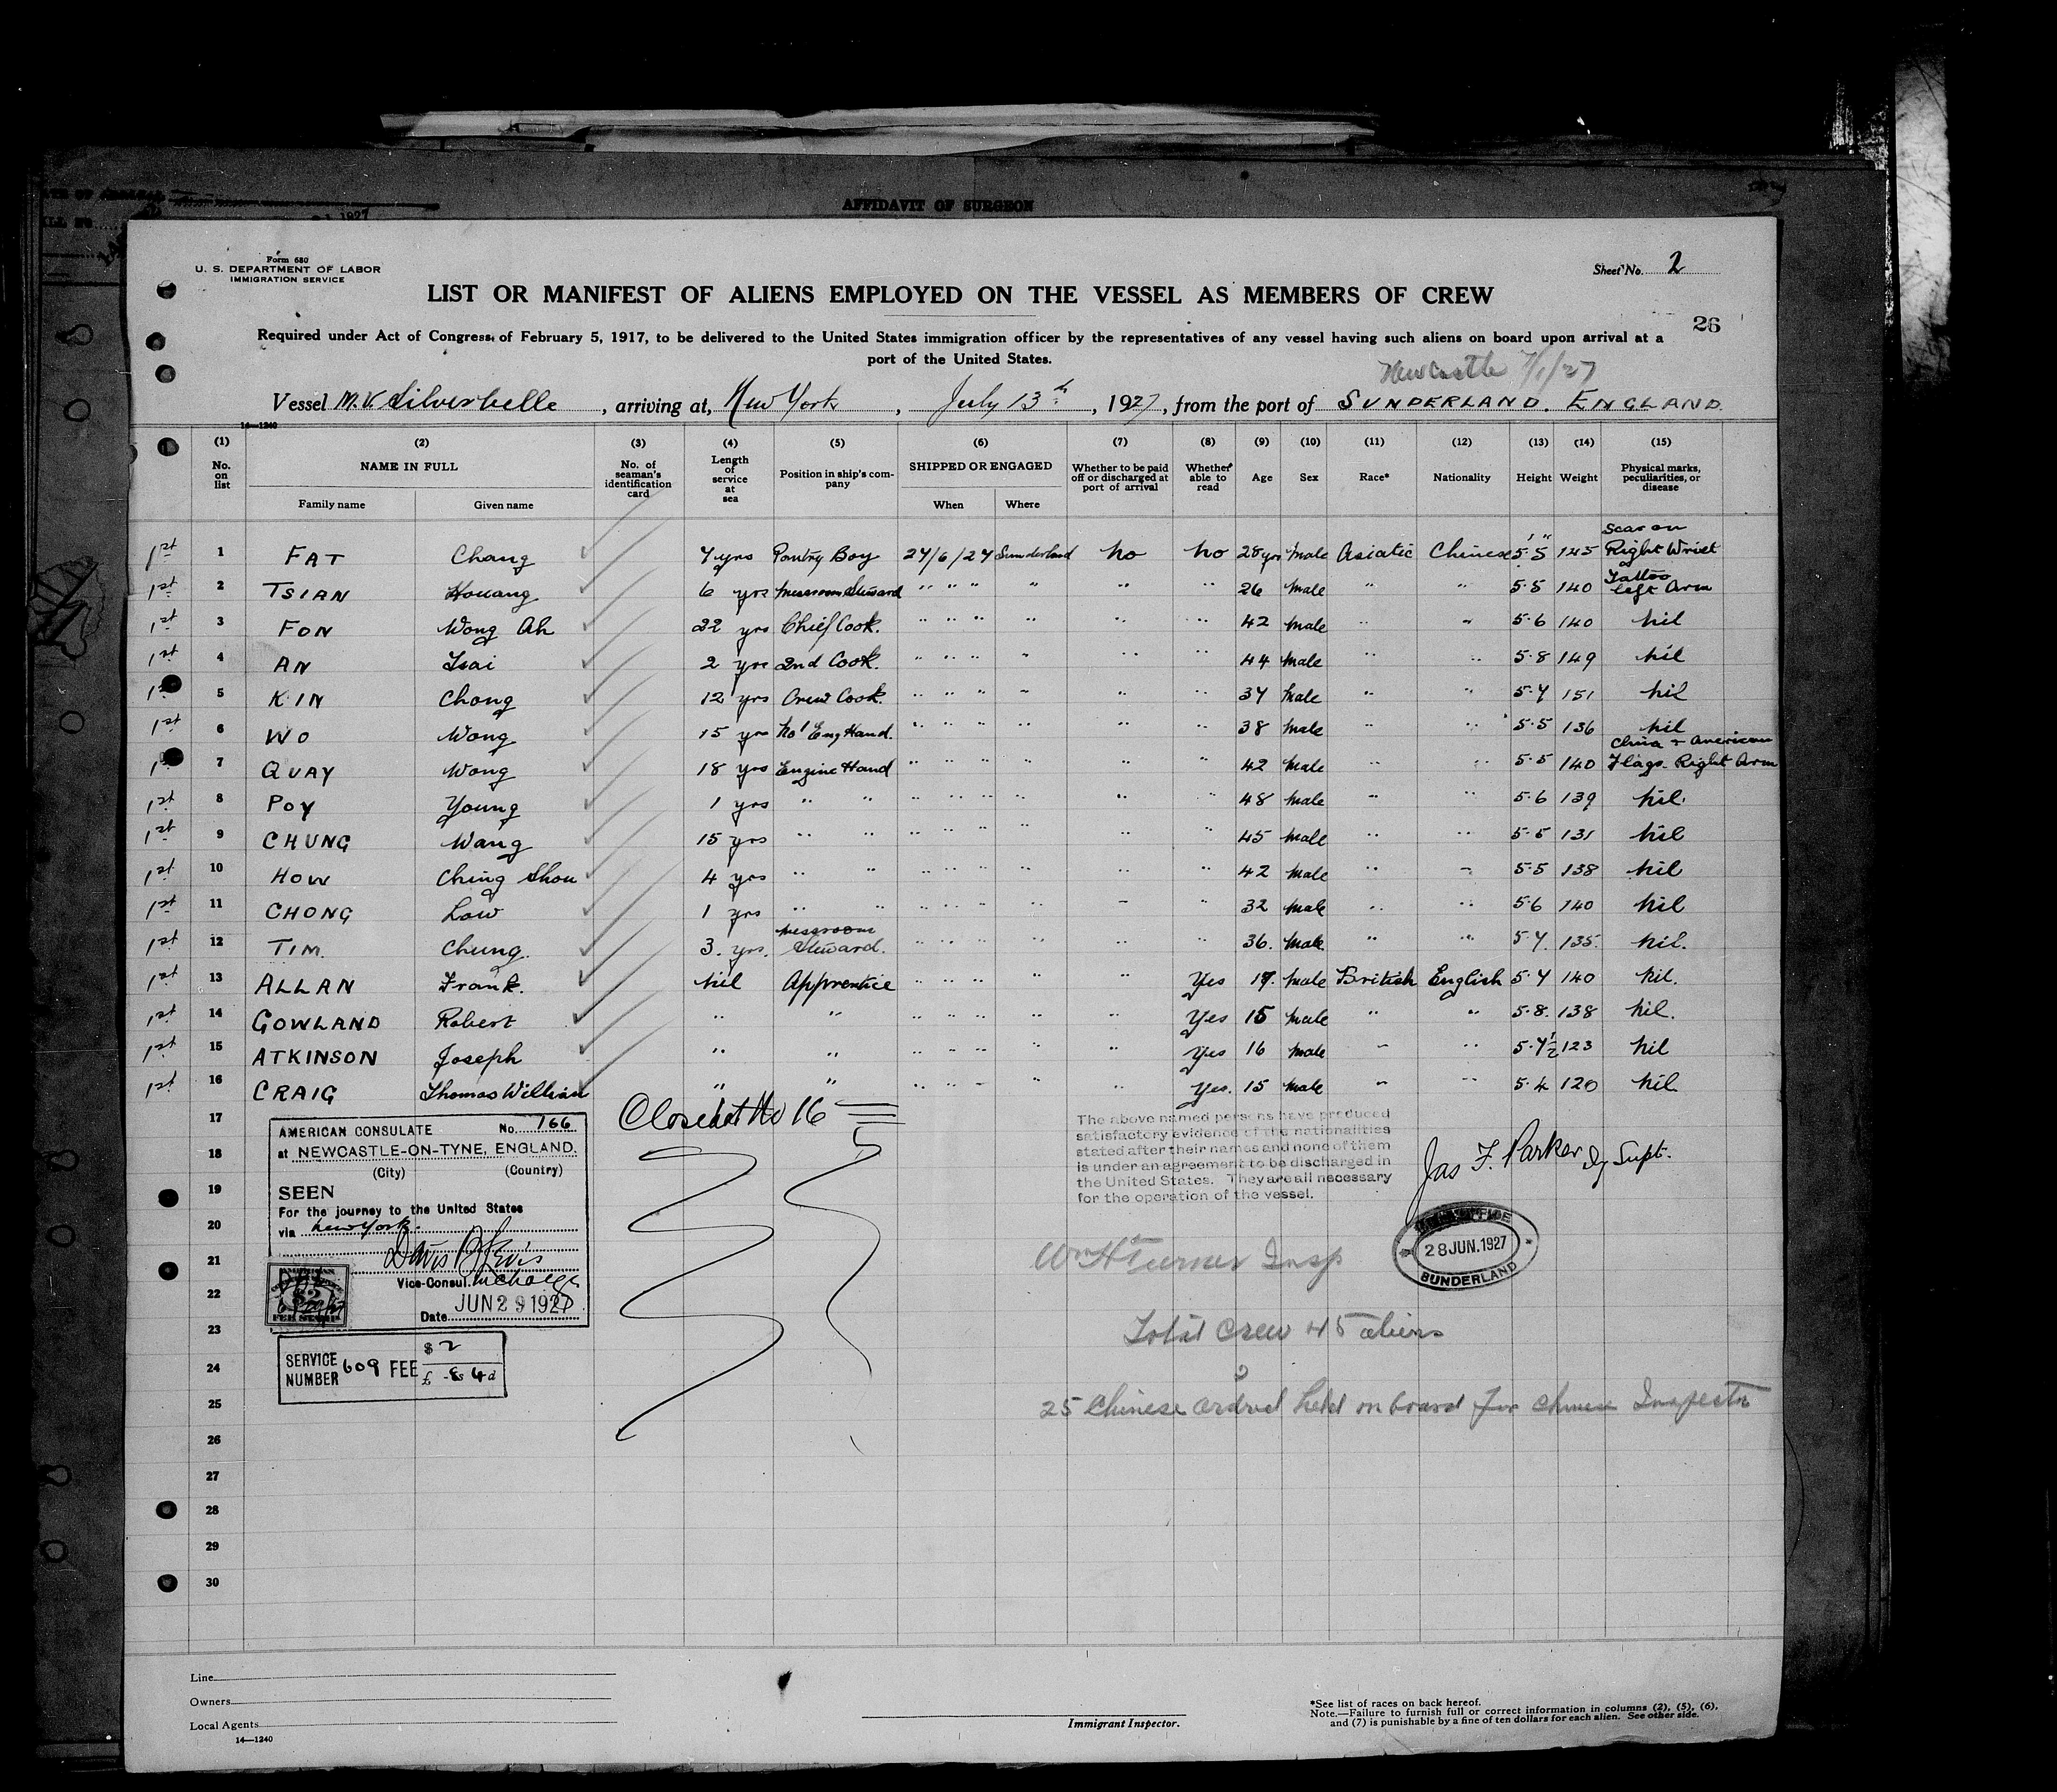 AFFIDAVIT OF SURGEON
1927
Form 680
U. S. DEPARTMENT OF LABOR
IMMIGRATION SERVICE
Sheet No. 2
LIST OR MANIFEST OF ALIENS EMPLOYED ON THE VESSEL AS MEMBERS OF CREW
26
Required under Act of Congress of February 5, 1917, to be delivered to the United States immigration officer by the representatives of any vessel having such aliens on board upon arrival at a
port of the United States.
Newcastle 7/1/27
Vessel M.V. Silverbelle, arriving at, New York, July 13th, 1927, from the port of SUNDERLAND. ENGLAND.
14—1240
(1) (2) (3) (4) (5) (6) (7) (8) (9) (10) (11) (12) (13) (14) (15)
No. on list NAME IN FULL No. of seaman's identification card Length of service at sea Position in ship's company SHIPPED OR ENGAGED Whether to be paid off or discharged at port of arrival Whether able to read Age Sex Race* Nationality Height Weight Physical marks, peculiarities, or disease
Family name Given name When Where
1st 1 FAT Chang 7 yrs Pantry Boy 27/6/27 Sunderland No No 28 yrs Male Asiatic Chinese 5' 5" 145 Scar on Right Wrist
1st 2 TSIAN Houang 6 yrs Messroom Steward " " " " " " 26 Male " " 5.5 140 Tattoo left Arm
1st 3 FON Wong Ah 22 yrs Chief Cook. " " " " " " 42 Male " " 5.6 140 Nil
1st 4 AN Tsai 2 yrs 2nd Cook. " " " " " " 44 Male " " 5.8 149 Nil
1st 5 KIN Chong 12 yrs Crew Cook. " " " " " " 37 Male " " 5.7 151 Nil
1st 6 WO Wong 15 yrs No 1 Eng Hand. " " " " " " 38 Male " " 5.5 136 Nil
1st 7 QUAY Wong 18 yrs Engine Hand " " " " " " 42 Male " " 5.5 140 China & American Flags. Right Arm
1st 8 POY Young 1 yrs " " " " " " " " 48 Male " " 5.6 139 Nil.
1st 9 CHUNG Wang 15 yrs " " " " " " " " 45 Male " " 5.5 131 Nil
1st 10 HOW Ching Shou 4 yrs " " " " " " " " 42 Male " " 5.5 138 Nil
1st 11 CHONG Low 1 yrs " " " " " " " " 32 Male " " 5.6 140 Nil
1st 12 TIM. Chung. 3. yrs. Messroom Steward. " " " " " " 36. Male. " " 5.7. 135. Nil.
1st 13 ALLAN Frank. Nil Apprentice " " " " " Yes 17. Male British English 5.7 140 Nil.
1st 14 GOWLAND Robert " " " " " " " Yes 15 Male " " 5.8. 138 Nil.
1st 15 ATKINSON Joseph " " " " " " " Yes 16 Male " " 5.7½ 123 Nil
1st 16 CRAIG Thomas William " " " " " " " Yes. 15 Male " " 5.4 120 Nil
17
18
19
20
21
22
23
24
25
26
27
28
29
30
Closed at No 16
AMERICAN CONSULATE No. 166
at NEWCASTLE-ON-TYNE, ENGLAND.
(City) (Country)
SEEN
For the journey to the United States
via New York.
Vice-Consul.
Date JUN 29 1927
SERVICE NUMBER 609 FEE $ 2
£ - 8s 4d
The above named persons have produced
satisfactory evidence of the nationalities
stated after their names and none of them
is under an agreement to be discharged in
the United States. They are all necessary
for the operation of the vessel.
Jas F. Parker Dy Supt.
28 JUN. 1927
SUNDERLAND
Wm H Turner Insp
Total crew 45 aliens
25 Chinese ordered held on board for Chinese Inspector
Line
Owners
Local Agents
14—1240
Immigrant Inspector.
*See list of races on back hereof.
Note.—Failure to furnish full or correct information in columns (2), (5), (6),
and (7) is punishable by a fine of ten dollars for each alien. See other side.